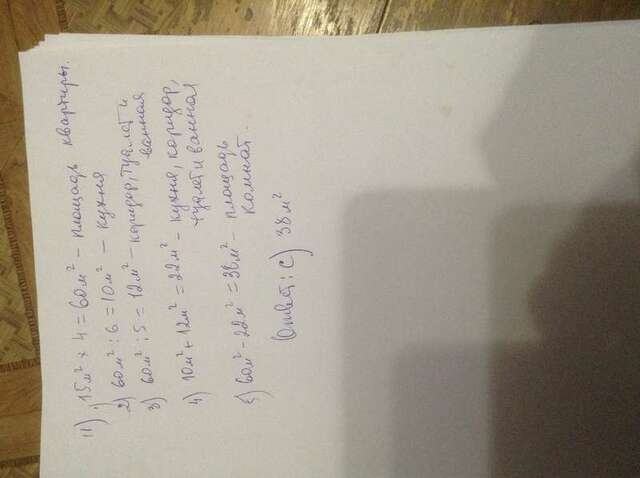 1) 15м² × 4 = 60м² – площадь квартиры.
2) 60м² : 6 = 10м² – кухня
3) 60м² : 5 = 12м² – коридор, туалет и
ванная
4) 10м² + 12м² = 22м² – кухня, коридор,
туалет и ванная
5) 60м² – 22м² = 38м² – площадь
комнат.
Ответ: С) 38м²